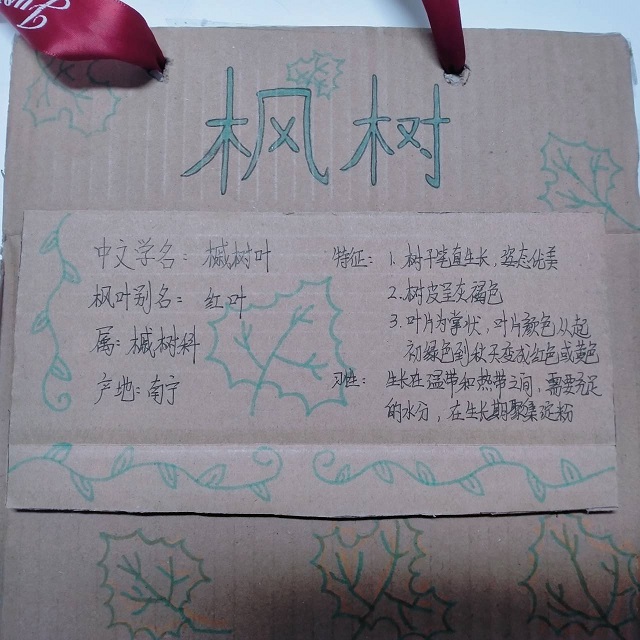 枫树
中文学名：槭树叶
枫叶别名：红叶
属：槭树科
产地：南宁
特征：1.树干笔直生长，姿态优美
2.树皮呈灰褐色
3.叶片为掌状，叶片颜色从起
初绿色到秋天变成红色或黄色
习性：生长在温带和热带之间，需要充足
的水分，在生长期聚集淀粉